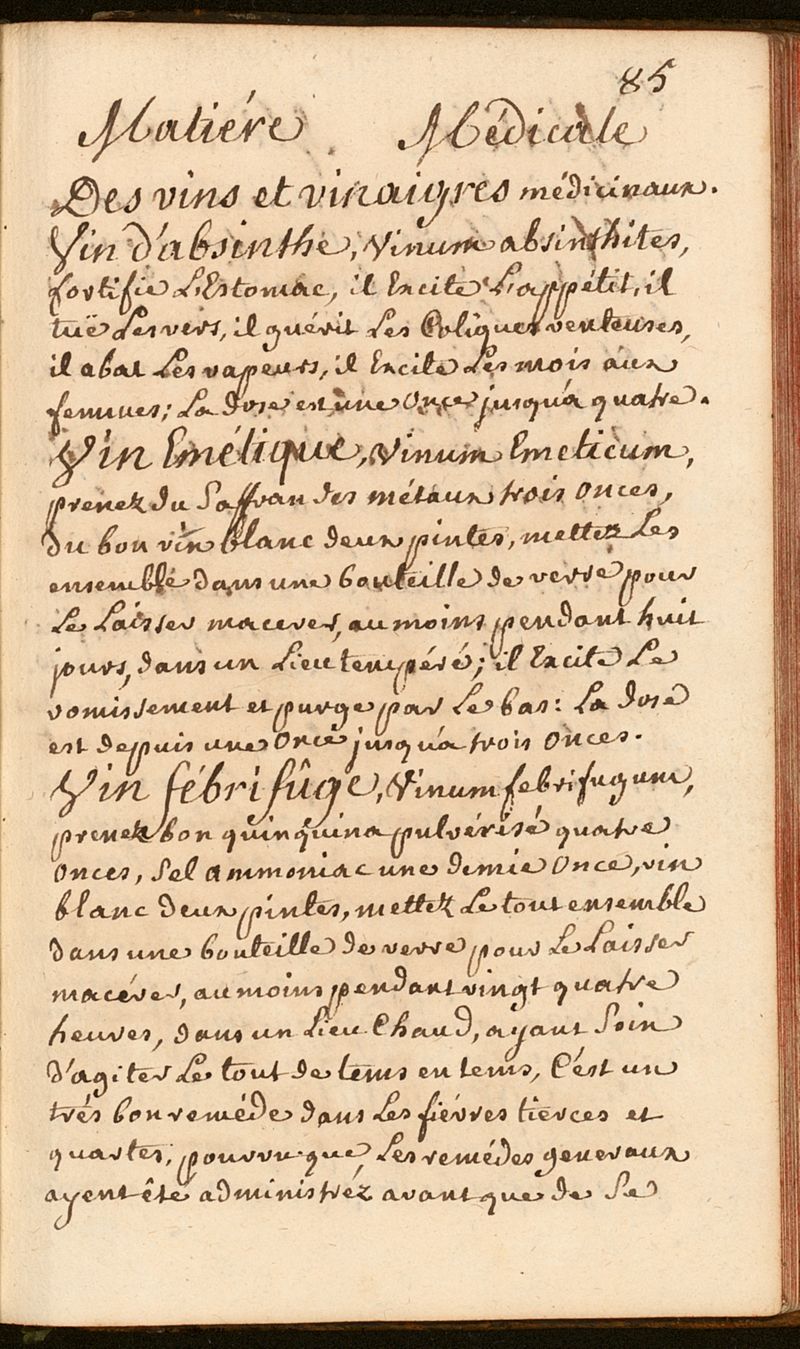 85
Matiére Médicale
Des vins et vinaigres médicinaux.
Vin d'absinthe, Vinum absinthites,
fortifie L'Estomac, il Excite L'appétit, il
tuë Les vers, il guérit Les Coliques venteuses,
il abat Les vapeurs, il Excite Les mois aux
femmes; La dose est une Once jusqu'a quatre.
Vin Emétique, Vinum Emeticum,
prenez du Saffran des métaux trois Onces,
du bon vin blanc deux pintes, mettez Les
ensemble dans une bouteille de verre pour
Le Laisser macerer, au moins pendant huit
jours, dans un Lieu tempéré; il Excite Le
vomissement et purge par Le bas: La dose
est depuis une Once jusqu'a trois Onces.
Vin fébrifûge, Vinum febrifugum,
prenez bon quinquina pulvérisé quatre
Onces, Sel ammoniac une demie Once, vin
blanc deux pintes, mettez Le tout ensemble
dans une bouteille de verre pour Le Laisser
macérer, au moins pendant vingt quatre
heures, dans un Lieu Chaud, ayant Soin
d'agiter Le tout de tems en tems, C'est un
trés bon reméde dans Les fiévres tierces et
quartes, pourvu que Les remédes generaux
ayent êté administréz avant que de Se